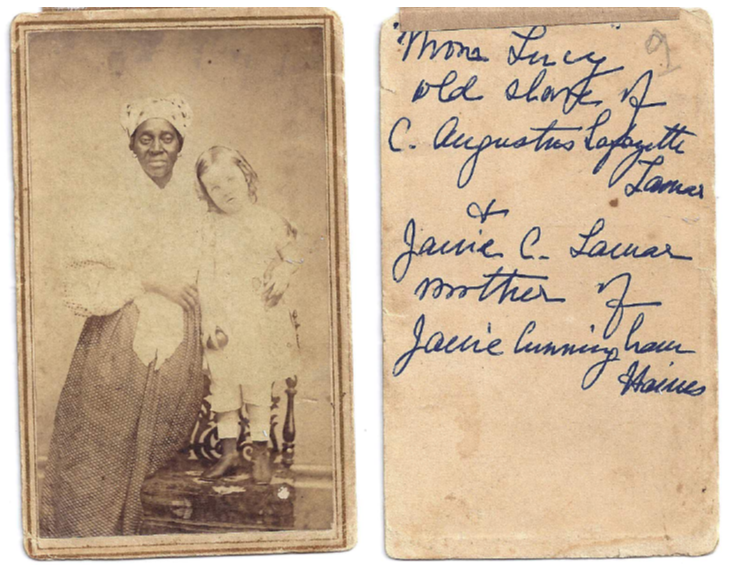 "Mona Lucy"
old slave of
C. Augustus Lafayette
Lamar
&
Janie C. Lamar
mother of
Janie Cunningham
Haines